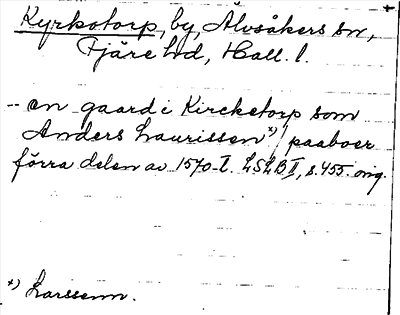 Kyrkotorp, by, Älvsåkers sn,
Fjäre hd, Hall. l.
-- en gaard i Kircketorp som
Anders Laurissen x) paaboer
förra delen av 1570-t. LSLB II, s. 455. orig.
x) Larssenn.